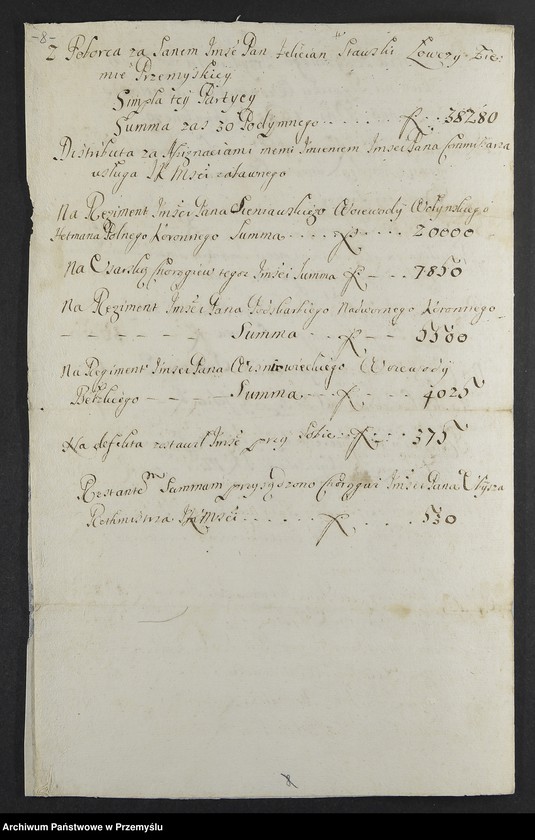 -8-
2 Poborca za Sanem Imść Pan Felician Stawski Łowczy Zie:
mie Przemyskiey
Simpla tey Partyey
Summa zas 30 Podymnego . . . . . . 38280
Distributa za Assignaciami memi Imieniem Imści Pana Commissarza
usługa JK Mści zabawnego
Na Regiment Imści Pana Sieniauskiego Woiewody Wołynskiego
Hetmana Polnego Koronnego Summa . . . . 20000
Na Chorągiew tegoz Imści Summa - - - 7850
Na Regiment Imści Pana Podskarbiego Nadwornego Koronnego
- - - - - - Summa . . . . 5500
Na Regiment Imści Pana Wisniowieckiego Woiewody
Bełzkiego - - - - Summa . . . - . . 4025
Na defekta zostawił Imść przy Sobie . . . 375
Restantem Summam przysądzono Chorągwi Imści Pana
Rothmistrza JK Mści . . . . . . . . . 530
8
Archiwum Państwowe w Przemyślu